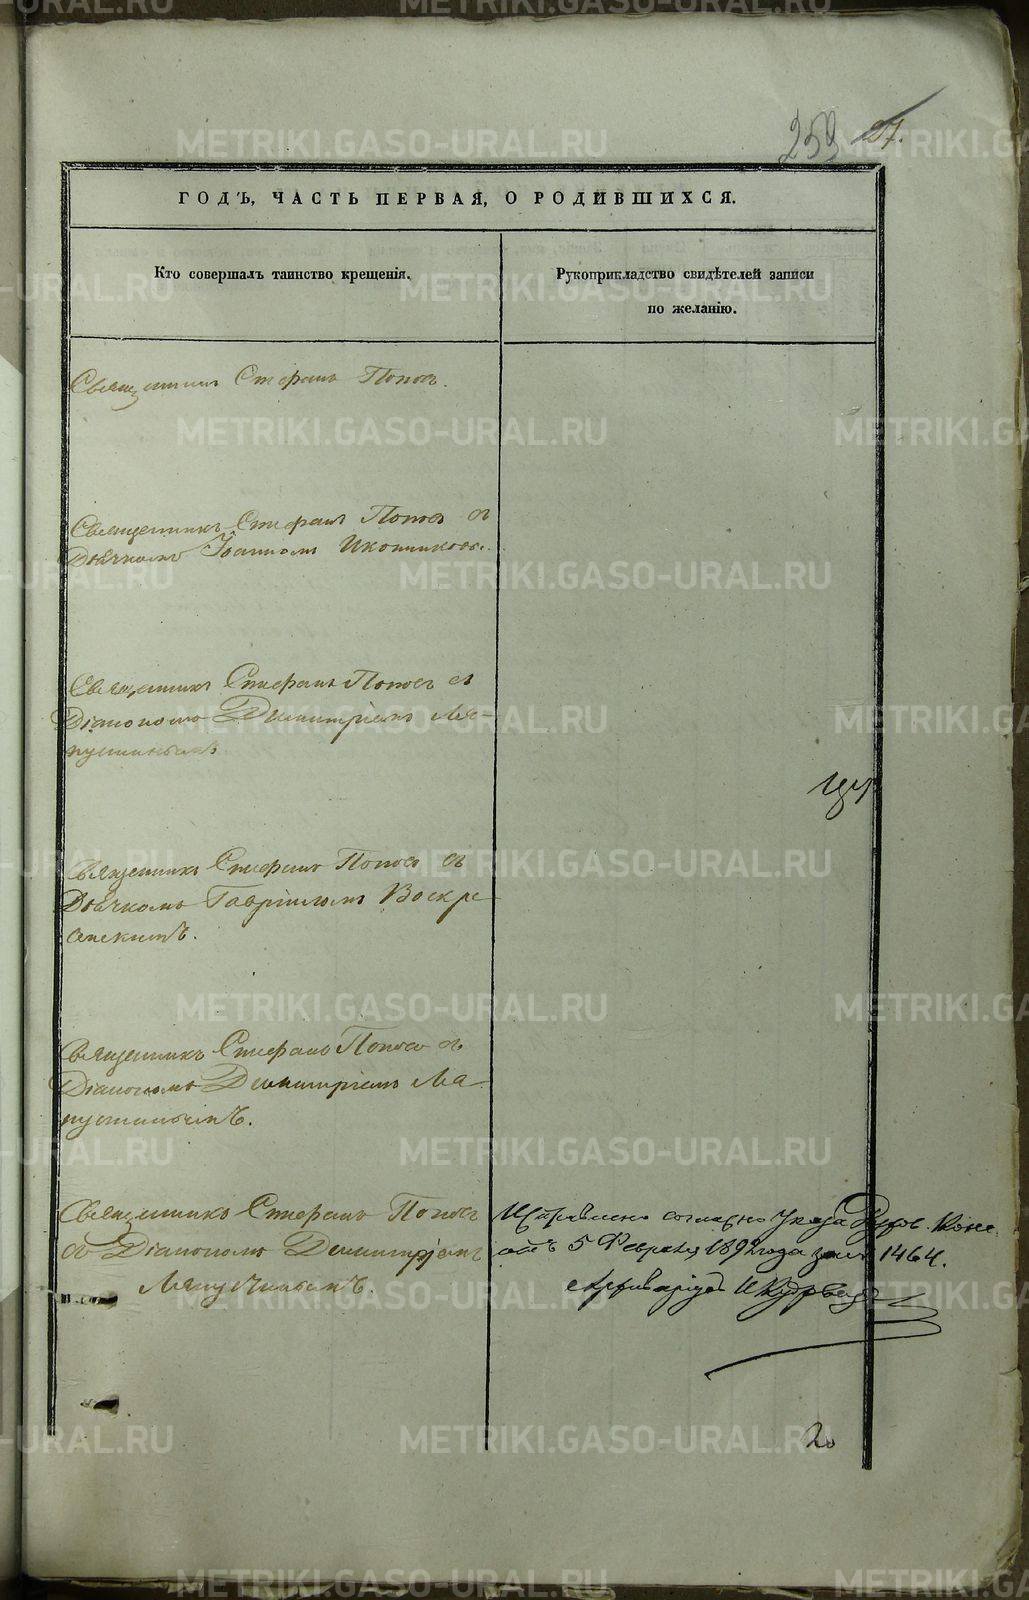 253 27.
ГОДЪ, ЧАСТЬ ПЕРВАЯ, О РОДИВШИХСЯ.
Кто совершалъ таинство крещенія.
Рукоприкладство свидѣтелей записи
по желанію.
Священникъ Стефанъ Поповъ.
Священникъ Стефанъ Поповъ съ
Дьячкомъ Іоанномъ Иконниковы.
Священникъ Стефанъ Поповъ съ
Діакономъ Димитріемъ Ля-
пустинымъ
Священникъ Стефанъ Поповъ съ
Дьячкомъ Гавріиломъ Воскре
сенскимъ.
Священникъ Стефанъ Поповъ съ
Діакономъ Димитріемъ Ля-
пустинымъ.
Священникъ Стефанъ Поповъ
съ Діакономъ Димитріемъ
Ляпустинымъ.
согласно Указа Конс.
отъ 5 Февраля 1892 года за № 1464.
METRIKI.GASO-URAL.RU